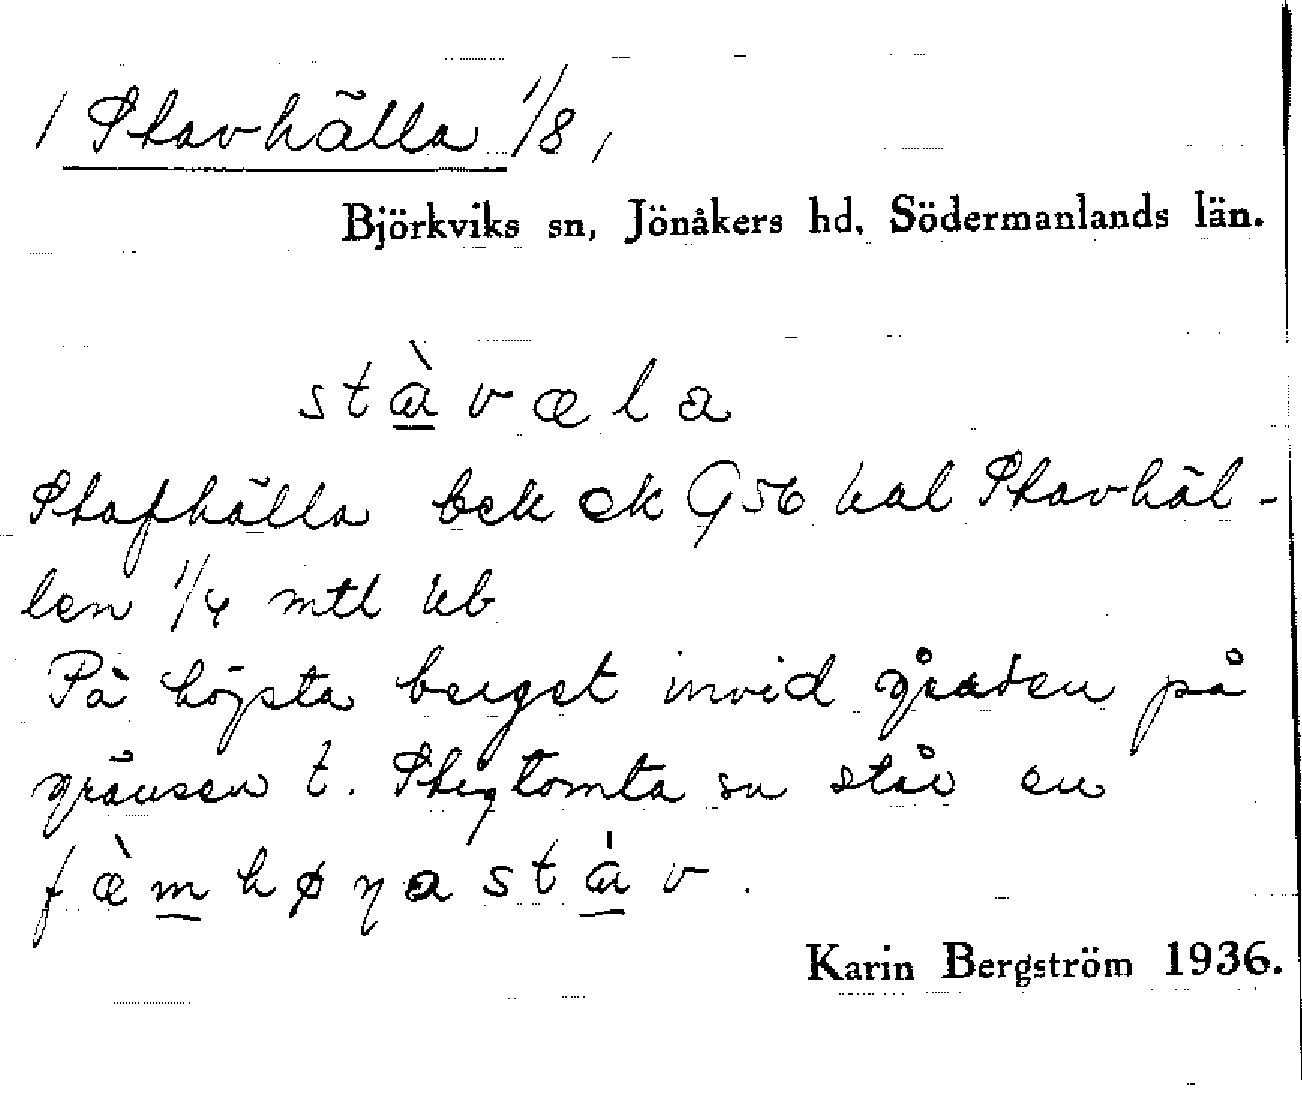 / Stavhälla 1/8,
Björkviks sn, Jönåkers hd, Södermanlands län.
stàvæla
Stafhälla bek ek G 56 kal Stavhäl-
len 1/4 mtl kb
På högsta berget invid gården på
gränsen t. Stigtomta sn står en
fæ̀mhøŋastàv.
Karin Bergström 1936.